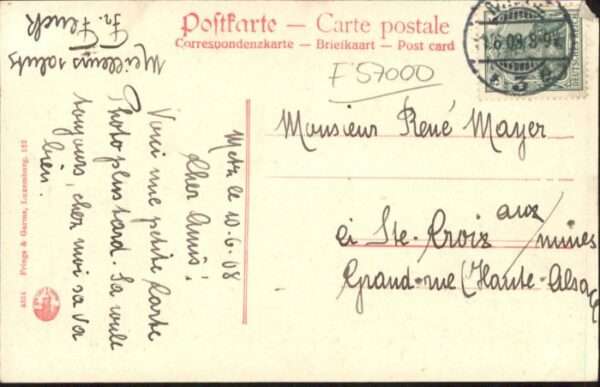 Postkarte — Carte postale
Correspondenzkarte — Briefkaart — Post card
F 57000
Monsieur René Mayer
à Ste-Croix aux mines
Grand-rue (Haute-Alsace
Metz le 10.6.08
Cher Amis!
Voici une petite Carte
Photo plus tard. Sa va
toujours, chez moi sa va
bien.
Meilleurs saluts
Fr.
Prings & Garms, Luxemburg. 152
DEUTSCHES REICH
3